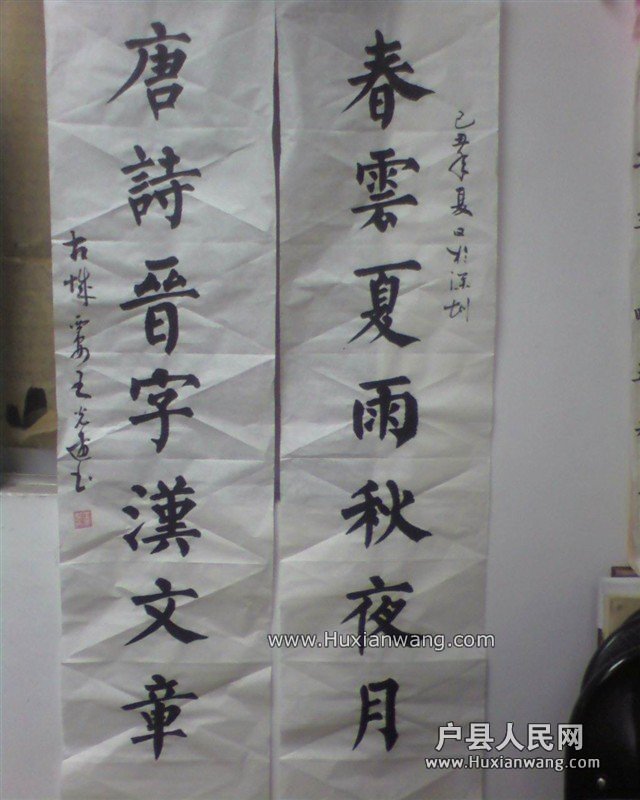 春雲夏雨秋夜月
己丑年夏日於深圳
唐詩晉字漢文章
古城
www.Huxianwang.com
户县人民网
www.Huxianwang.com